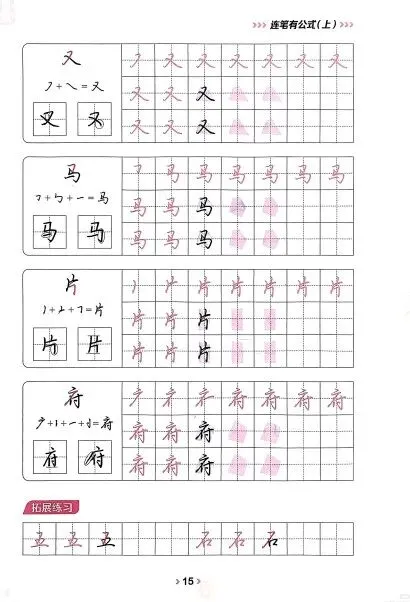 >>> 连笔有公式（上） >>>
又
又 又 又 又 又 又
㇇+㇏=又
又 又 又
又 又
又 又 又
马
马 马 马 马 马 马
马 马 马
马 马
马 马 马
片
片 片 片 片 片
片 片 片
片 片
片 片 片
府
府 府 府 府
府 府 府
府 府
府 府 府
拓展练习
五 五 五 石 石 石
>15>